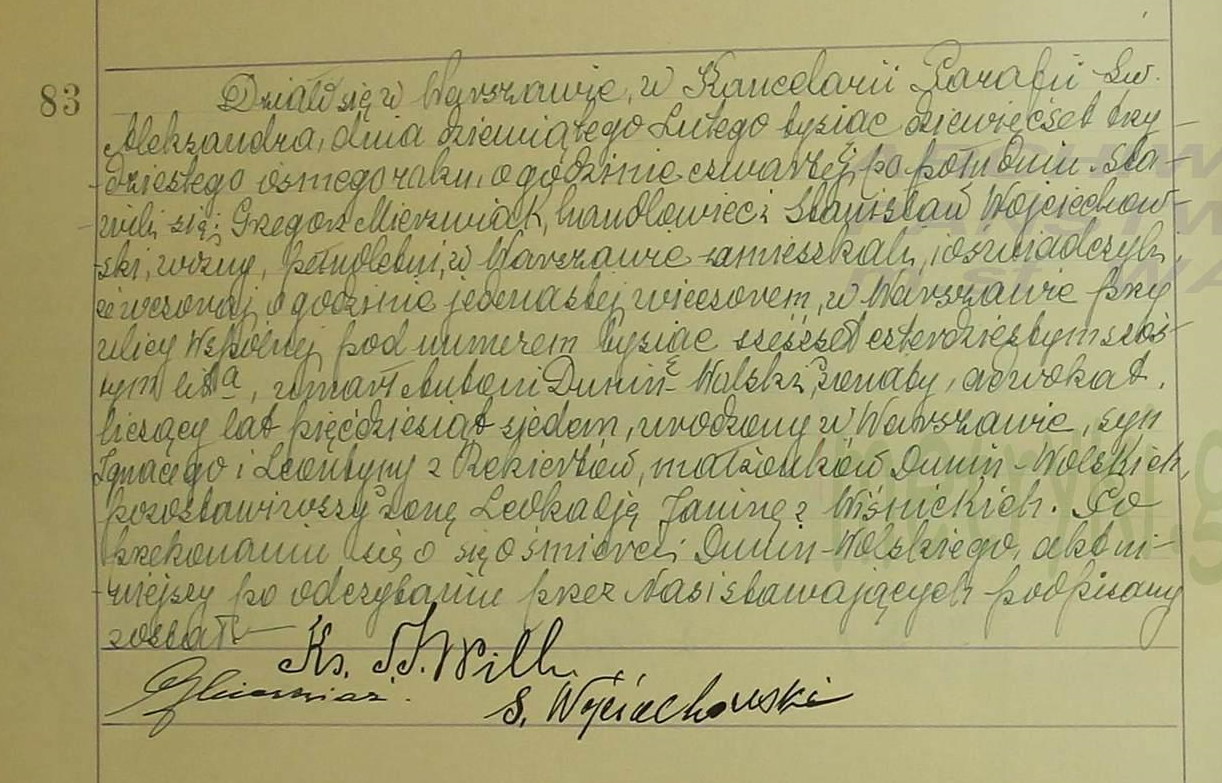 83
Działo się w Warszawie, w Kancelarii Parafii Św.
Aleksandra, dnia dziewiątego Lutego tysiąc dziewięćset trzy-
dziestego ósmego roku, o godzinie czwartej po południu. Sta-
wili się: Grzegorz Mierzwiak, handlowiec i Stanisław Wojciechow-
ski, woźny, pełnoletni, w Warszawie zamieszkali, i oświadczyli,
że wczoraj o godzinie jedenastej wieczorem, w Warszawie przy
ulicy Wspólnej pod numerem tysiąc sześćset czterdziestym szós-
tym lit a, umarł Antoni Dunin-Wolski, żonaty, adwokat,
liczący lat pięćdziesiąt siedem, urodzony w Warszawie, syn
Ignacego i Leontyny z Rekiertów, małżonków Dunin-Wolskich,
pozostawiwszy żonę Leokadję Janinę z Wiśnickich. Po
przekonaniu się o się o śmierci Dunin-Wolskiego, akt ni-
niejszy po odczytaniu przez Nas i stawających podpisany
został
Ks. J. Will
S. Wojciechowski